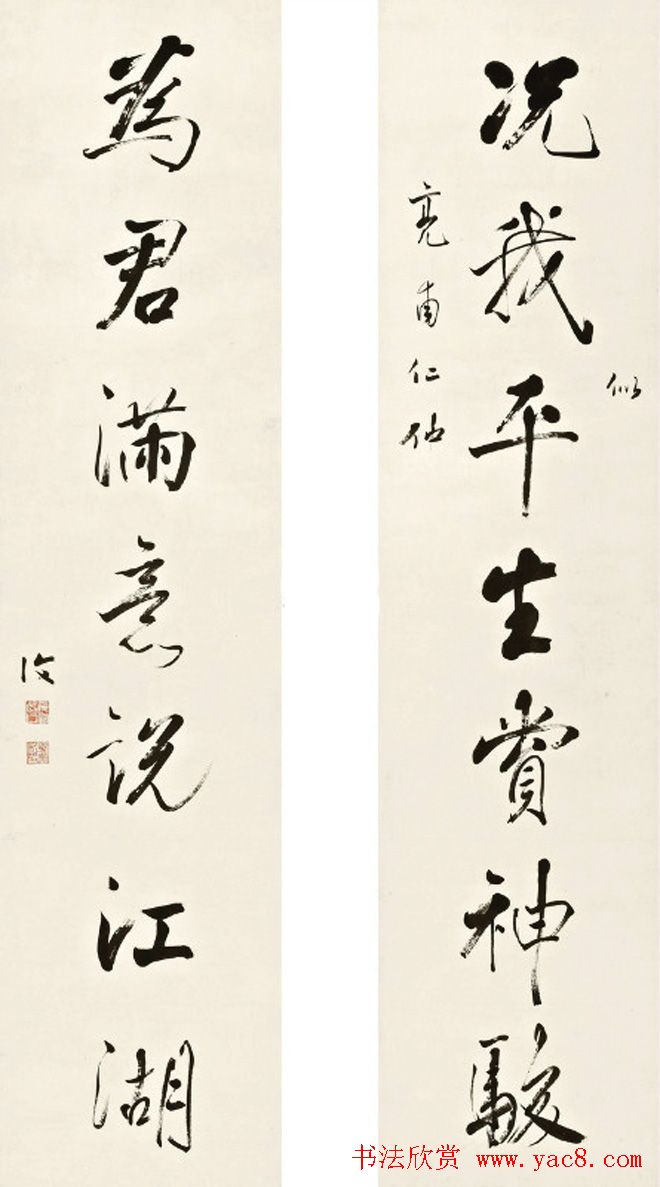 况我平生賞神駿
似
亮甫仁
為君滿意說江湖
书法欣赏 www.yac8.com